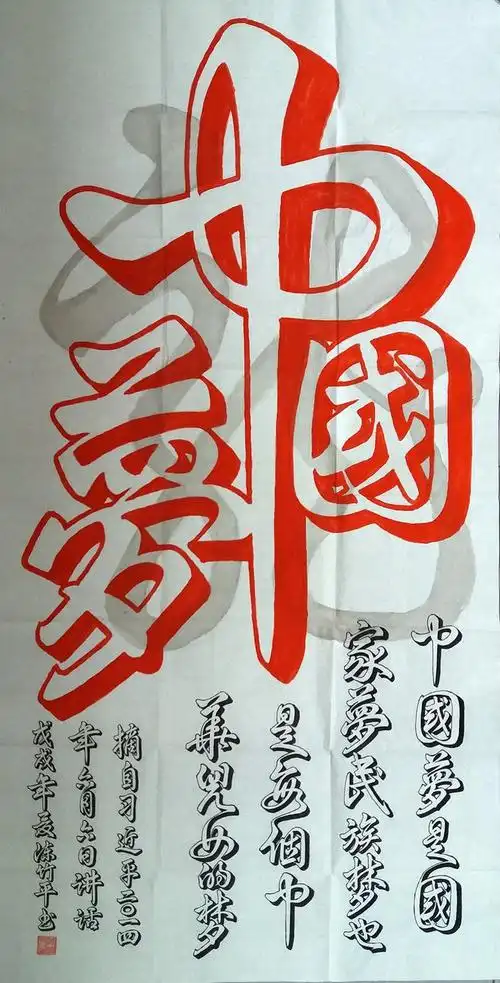 中國夢
中國夢是國
家夢民族梦也
是每個中
華兒女的梦
摘自习近平二〇一四
年六月六日讲话
戊戌年夏涂竹平书